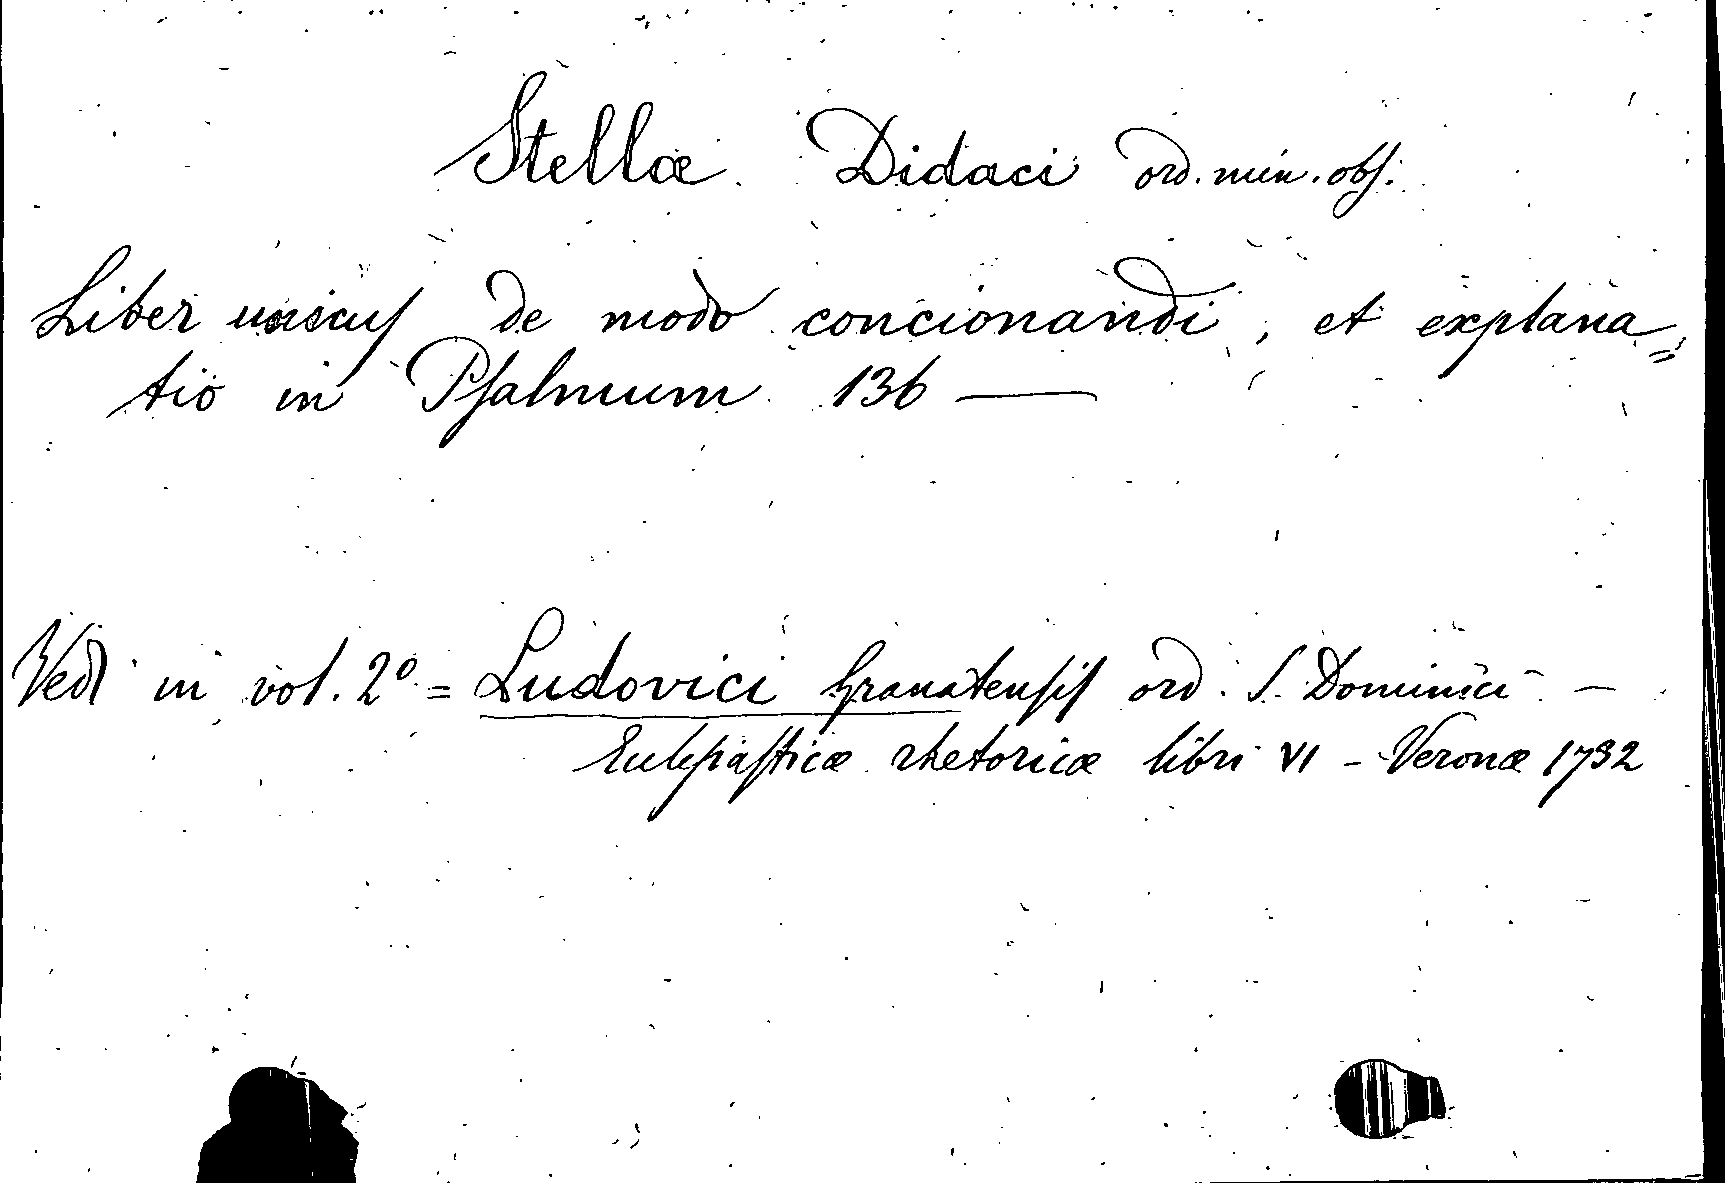 Stellæ Didaci ord. min. obs.
Liber unicus de modo concionandi, et explana=
tio in Psalmum 136 —
Vedi in vol. 2º = Ludovici Granatensis ord. S. Dominici —
Eclesiasticæ rhetoricæ libri VI - Veronæ 1732